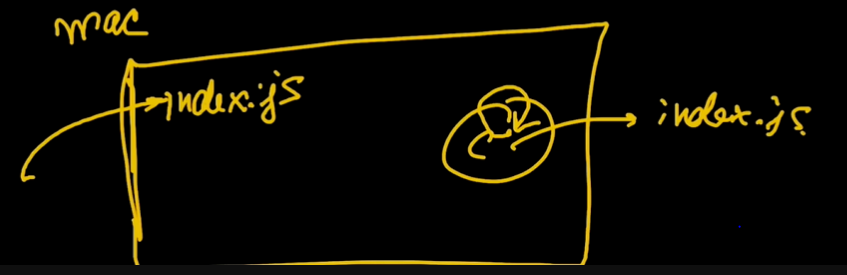 mac
index.js
index.js